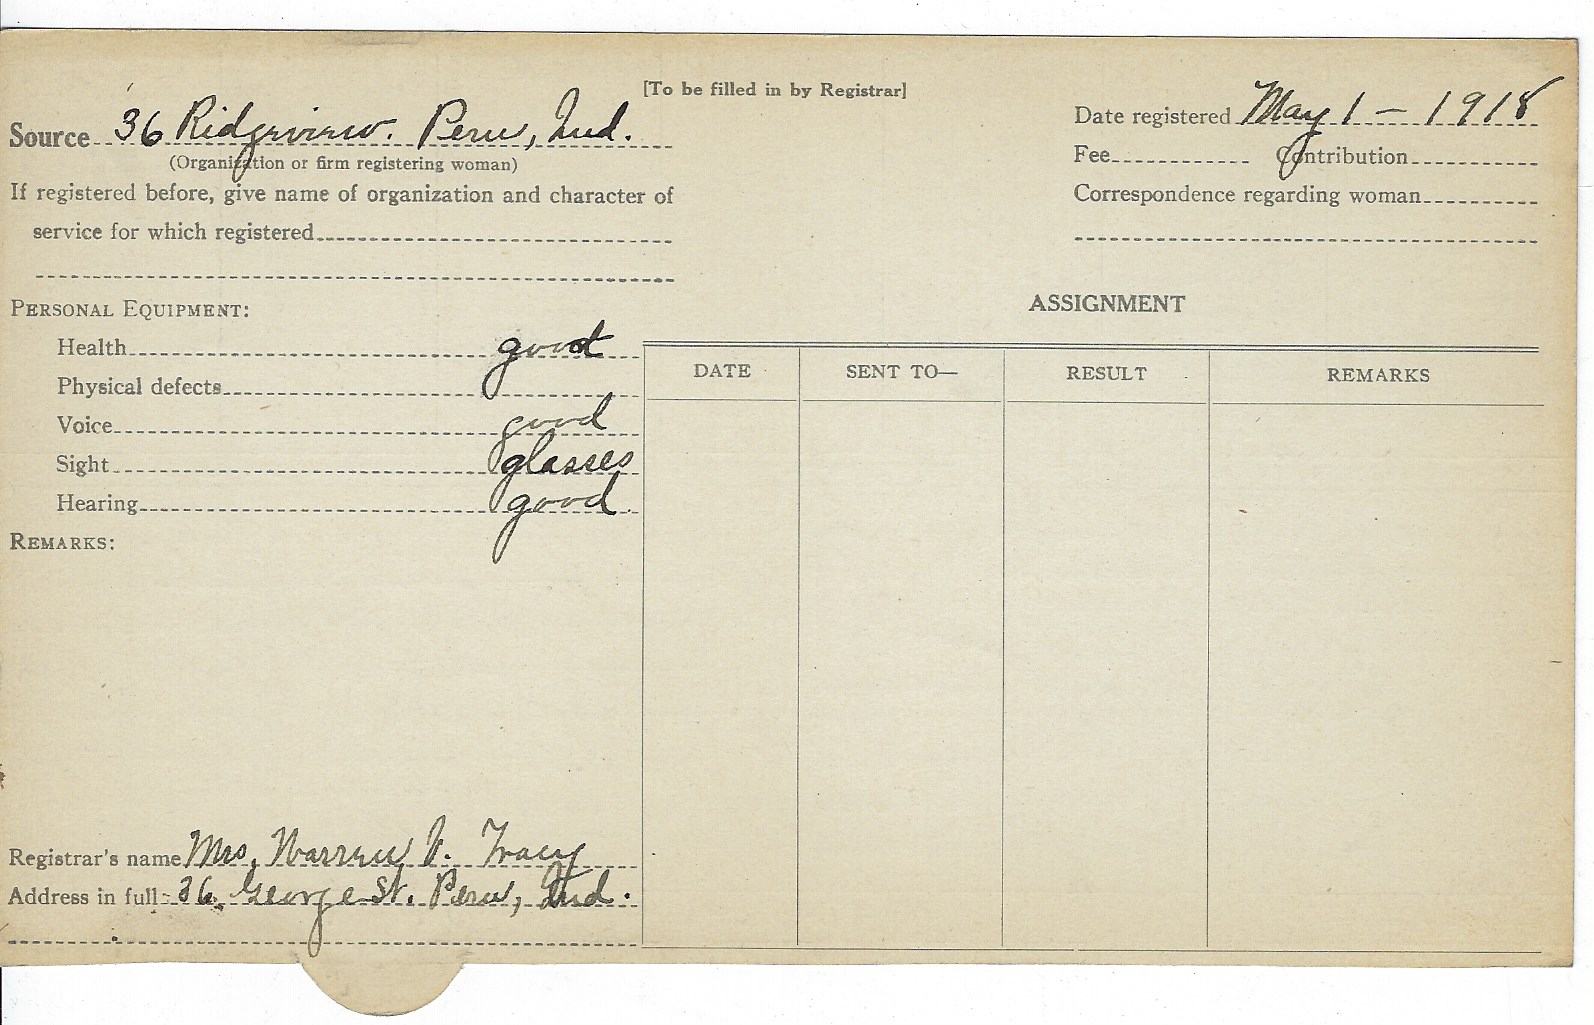 [To be filled in by Registrar]
Source 36 Ridgeview. Peru, Ind.
(Organization or firm registering woman)
If registered before, give name of organization and character of
service for which registered
Date registered May 1 - 1918
Fee Contribution
Correspondence regarding woman
PERSONAL EQUIPMENT:
Health good
Physical defects
Voice good
Sight glasses
Hearing good
REMARKS:
Registrar's name Mrs. Warren V. Tracy
Address in full 36 George St. Peru, Ind.
ASSIGNMENT
DATE SENT TO— RESULT REMARKS